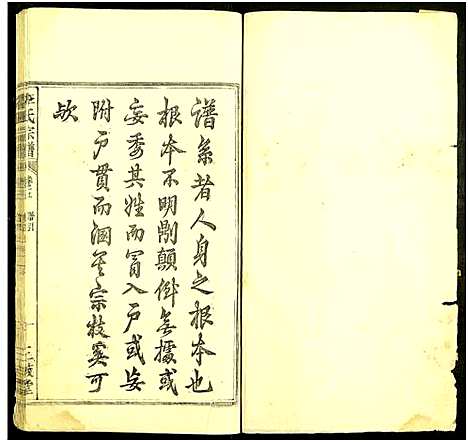 譜系者人身之根本也
根本不明則顛倒無據或
妄委其姓而冒入戶或妄
附戶貫而溷其宗枝奚可
欤
氏宗譜
卷之
譜引